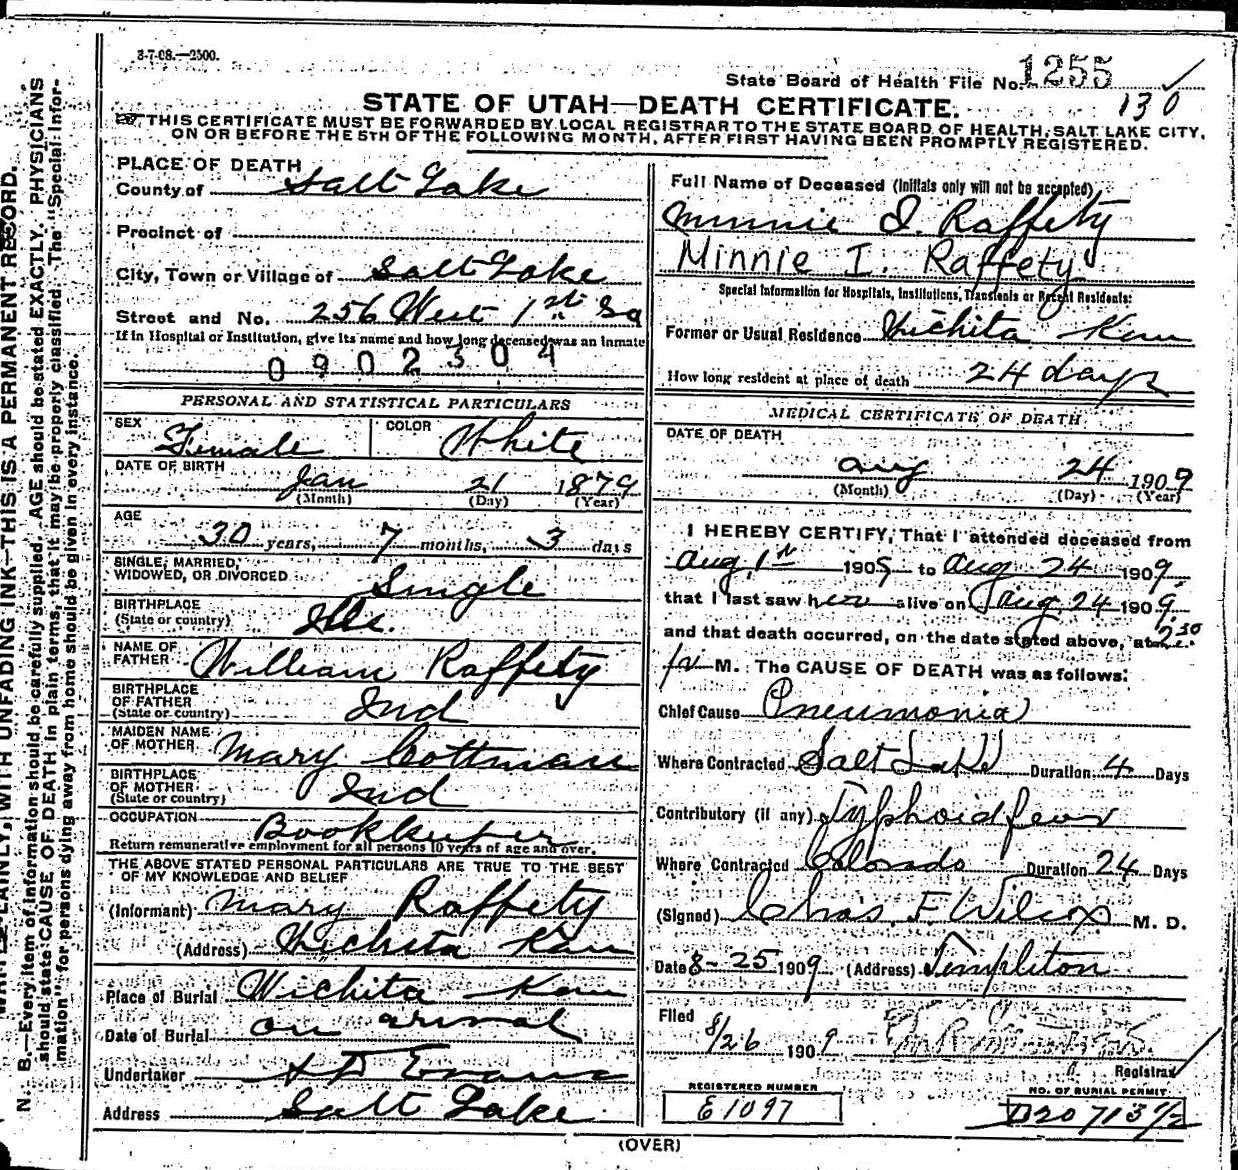 3-7-08.—2500.
State Board of Health File No. 1255
130
STATE OF UTAH—DEATH CERTIFICATE.
THIS CERTIFICATE MUST BE FORWARDED BY LOCAL REGISTRAR TO THE STATE BOARD OF HEALTH, SALT LAKE CITY,
ON OR BEFORE THE 5TH OF THE FOLLOWING MONTH, AFTER FIRST HAVING BEEN PROMPTLY REGISTERED.
PLACE OF DEATH
County of Salt Lake
Precinct of
City, Town or Village of Salt Lake
Street and No. 256 West 1st So
If in Hospital or Institution, give its name and how long deceased was an inmate
0902304
PERSONAL AND STATISTICAL PARTICULARS
SEX Female COLOR White
DATE OF BIRTH Jan 21 1879
(Month) (Day) (Year)
AGE
30 years, 7 months, 3 days
SINGLE, MARRIED,
WIDOWED, OR DIVORCED Single
BIRTHPLACE
(State or country) Ills.
NAME OF
FATHER William Raffety
BIRTHPLACE
OF FATHER
(State or country) Ind
MAIDEN NAME
OF MOTHER Mary Cottman
BIRTHPLACE
OF MOTHER
(State or country) Ind
OCCUPATION Bookkeeper
Return remunerative employment for all persons 10 years of age and over.
THE ABOVE STATED PERSONAL PARTICULARS ARE TRUE TO THE BEST
OF MY KNOWLEDGE AND BELIEF
(Informant) Mary Raffety
(Address) Wichita Kan
Place of Burial Wichita Kan
Date of Burial on arrival
Undertaker Evans
Address Salt Lake
Full Name of Deceased (Initials only will not be accepted)
Minnie I. Raffety
Minnie I. Raffety
Special Information for Hospitals, Institutions, Transients or Recent Residents:
Former or Usual Residence Wichita Kan
How long resident at place of death 24 days
MEDICAL CERTIFICATE OF DEATH
DATE OF DEATH
Aug 24 1909
(Month) (Day) (Year)
I HEREBY CERTIFY, That I attended deceased from
Aug 1st 1909 to Aug 24 1909,
that I last saw her alive on Aug 24 1909
and that death occurred, on the date stated above, at 2:30
P M. The CAUSE OF DEATH was as follows:
Chief Cause Pneumonia
Where Contracted Salt Lake Duration 4 Days
Contributory (if any) Typhoid fever
Where Contracted Colorado Duration 24 Days
(Signed) Chas F Wilcox M. D.
Date 8-25 1909 (Address) Templeton
Filed
8/26 1909
Registrar
REGISTERED NUMBER
E1097
NO. OF BURIAL PERMIT
D20713½
(OVER)
N. B.—Every item of information should be carefully supplied. AGE should be stated EXACTLY. PHYSICIANS
should state CAUSE OF DEATH in plain terms, that it may be properly classified. The "Special Infor-
mation" for persons dying away from home should be given in every instance.
PLAINLY, WITH UNFADING INK—THIS IS A PERMANENT RECORD.